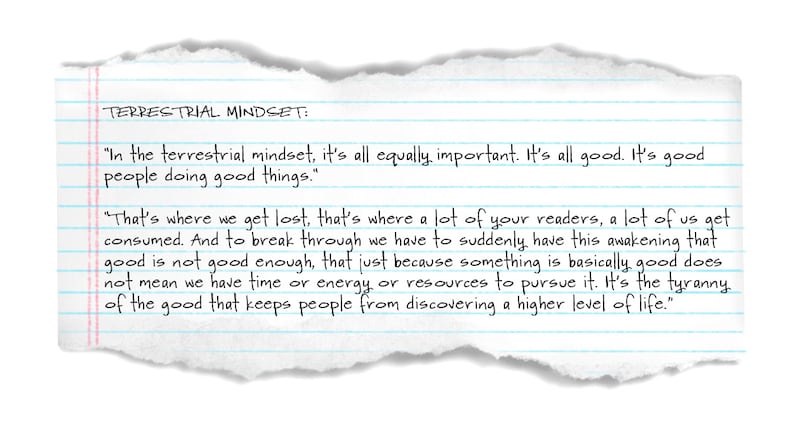 TERRESTRIAL MINDSET:
"In the terrestrial mindset, it's all equally important. It's all good. It's good
people doing good things."
"That's where we get lost, that's where a lot of your readers, a lot of us get
consumed. And to break through we have to suddenly have this awakening that
good is not good enough, that just because something is basically good does
not mean we have time or energy or resources to pursue it. It's the tyranny
of the good that keeps people from discovering a higher level of life."